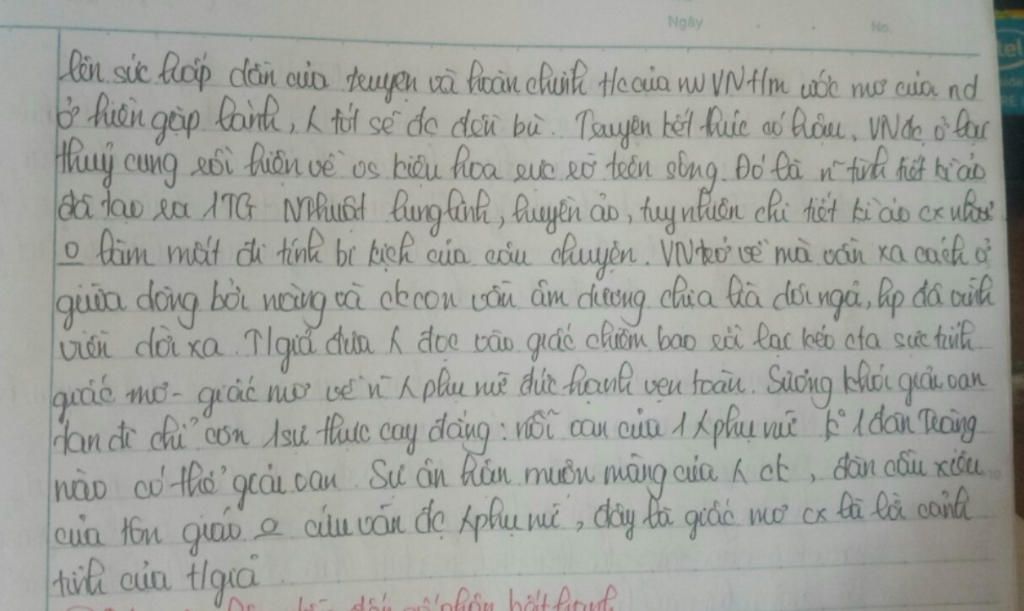 Ngày No.
tel
lên sức hấp dẫn của truyện và hoàn chỉnh t/c của nv VN t/h ước mơ của nd
ở hiền gặp lành, ng tốt sẽ đc đền bù. Truyện kết thúc có hậu. VN đc ở lại
thuỷ cung rồi hiện về trên kiệu hoa rực rỡ trên sông. Đó là n~ tình tiết kì ảo
đã tạo ra 1 TG Nthuật lung linh, huyền ảo, tuy nhiên chi tiết kì ảo cx như
0 làm mất đi tính bi kịch của câu chuyện. VN trở về mà vẫn xa cách ở
giữa dòng bởi nàng và ck con vẫn âm dương chia lìa đôi ngả, hp đã vĩnh
viễn dời xa. T/giả đưa ng đọc vào giấc chiêm bao rồi lại kéo cta sực tỉnh
giấc mơ - giấc mơ về n~ ng phụ nữ đức hạnh vẹn toàn. Sương khói giải oan
tan đi chỉ còn 1 sự thực cay đắng: nỗi oan của 1 ng phụ nữ k° 1 đàn Tràng
nào có thể giải oan. Sự ân hận muộn màng của ng ck, đàn cầu siêu
của tôn giáo 0 cứu vãn đc ng phụ nữ, đây là giấc mơ cx là lời cảnh
tỉnh của t/giả